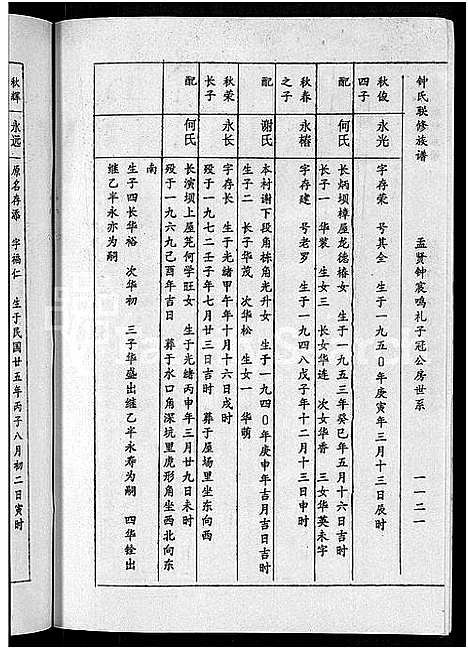 钟氏联修族谱　孟贤钟宸鸣礼子冠公房世系　一一二一
秋俊四子　永光　字存荣　号其全　生于一九五0年庚寅年三月十三日辰时
配　何氏　长炳坝樟屋龙德椿女　生于一九五三年癸巳年五月十六日吉时
长子一　华裳　生女三　长女华连　次女华香　三女华英未字
秋春之子　永椿　字存建　号老罗　生于一九四八戊子年十二月十三日申时
配　谢氏　本村谢下段角栋角光升女　生于一九四0年庚申年吉月吉日吉时
生子二　长子华茂　次华松　生女一　华萌
秋荣长子　永长　字存长　生于光绪甲午年十月十六日戌时
殁于一九七二壬子年七月廿三日吉时　葬于屋场里坐东向西
配　何氏　长演坝上屋芫何学旺女　生于光绪丙申年三月廿九日未时
殁于一九六九己酉年吉日　葬于水口角深坑里虎形角坐西北向东
南
生子四长华裕　次华初　三子华盛出继乙半永寿为嗣　四华铨出
继乙半永亦为嗣
秋辉　永远　原名存添　字福仁　生于民国廿五年丙子八月初二日寅时